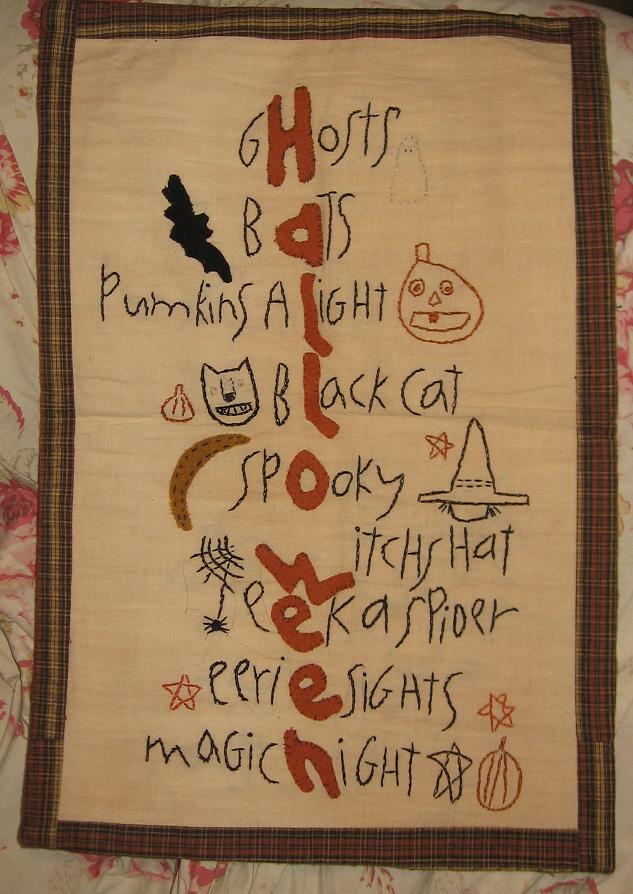 GHosts
BaTS
Pumkins A lIGHT
Black Cat
SPooky
WitcHs Hat
eek a sPiDer
eerie SiGHTs
magic niGHT